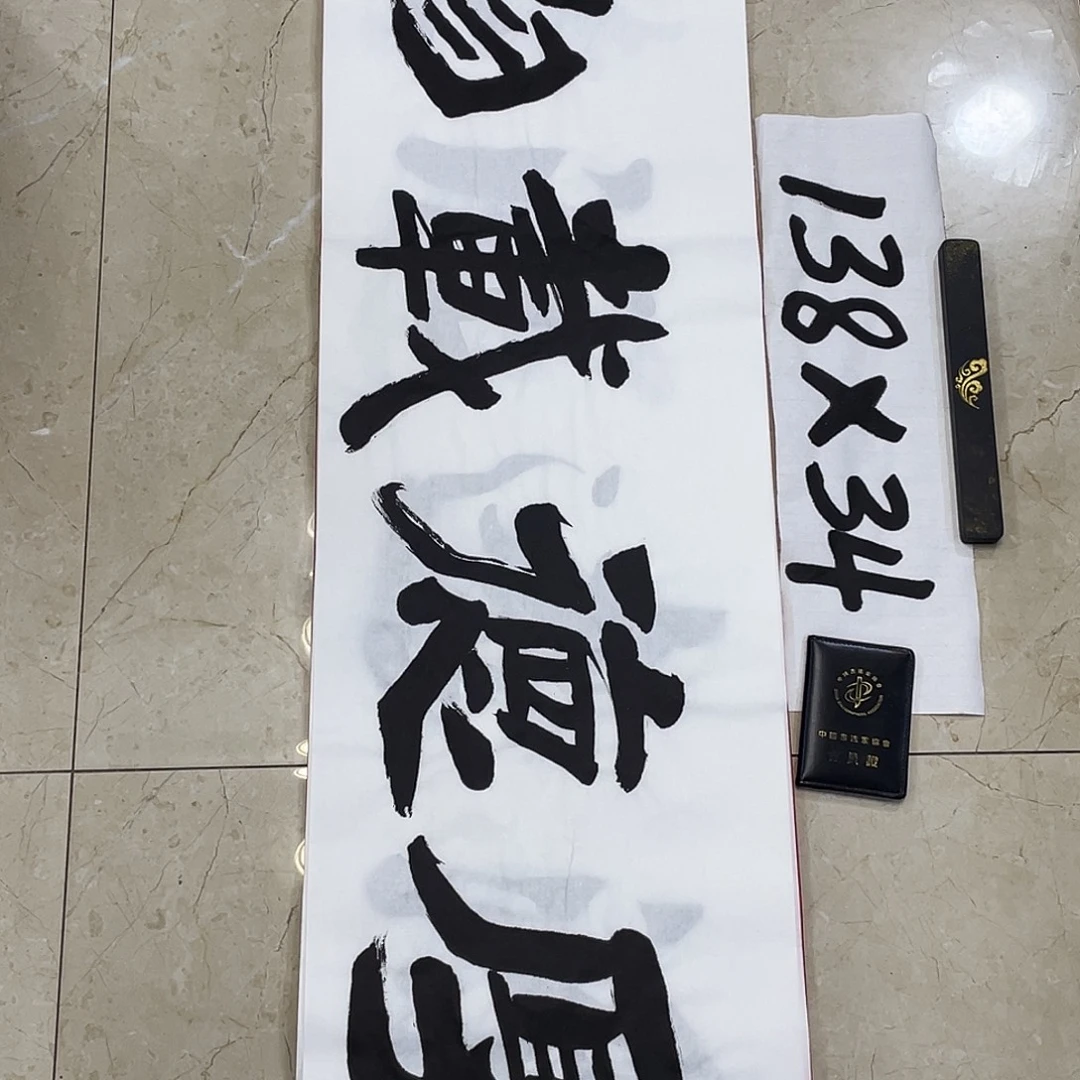 厚德載物
138×34
中國書法家協會
會員證